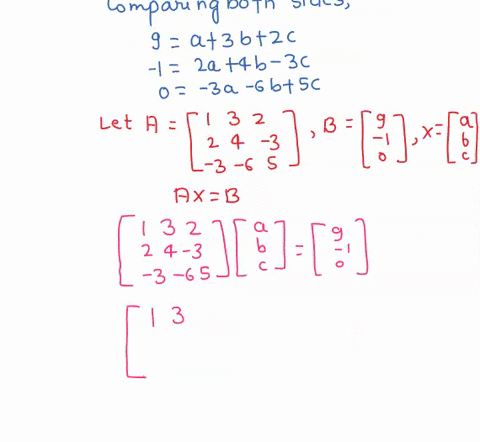 Comparing both sides,
9 = a+3b+2c
-1 = 2a+4b-3c
0 = -3a-6b+5c
Let A = [1 3 2
2 4 -3
-3 -6 5], B = [9
-1
0], x = [a
b
c]
AX = B
[1 3 2
2 4 -3
-3 -6 5] [a
b
c] = [9
-1
0]
[1 3